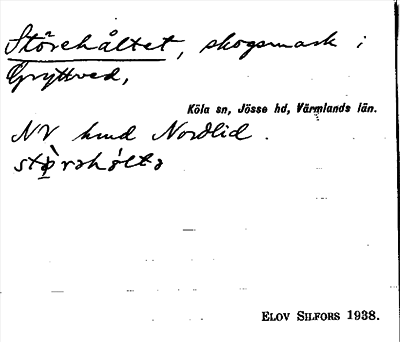 Störehåltet, skogsmark i
Gryttved,
Köla sn, Jösse hd, Värmlands län.
NV hmd Nordlid.
ELOV SILFORS 1938.